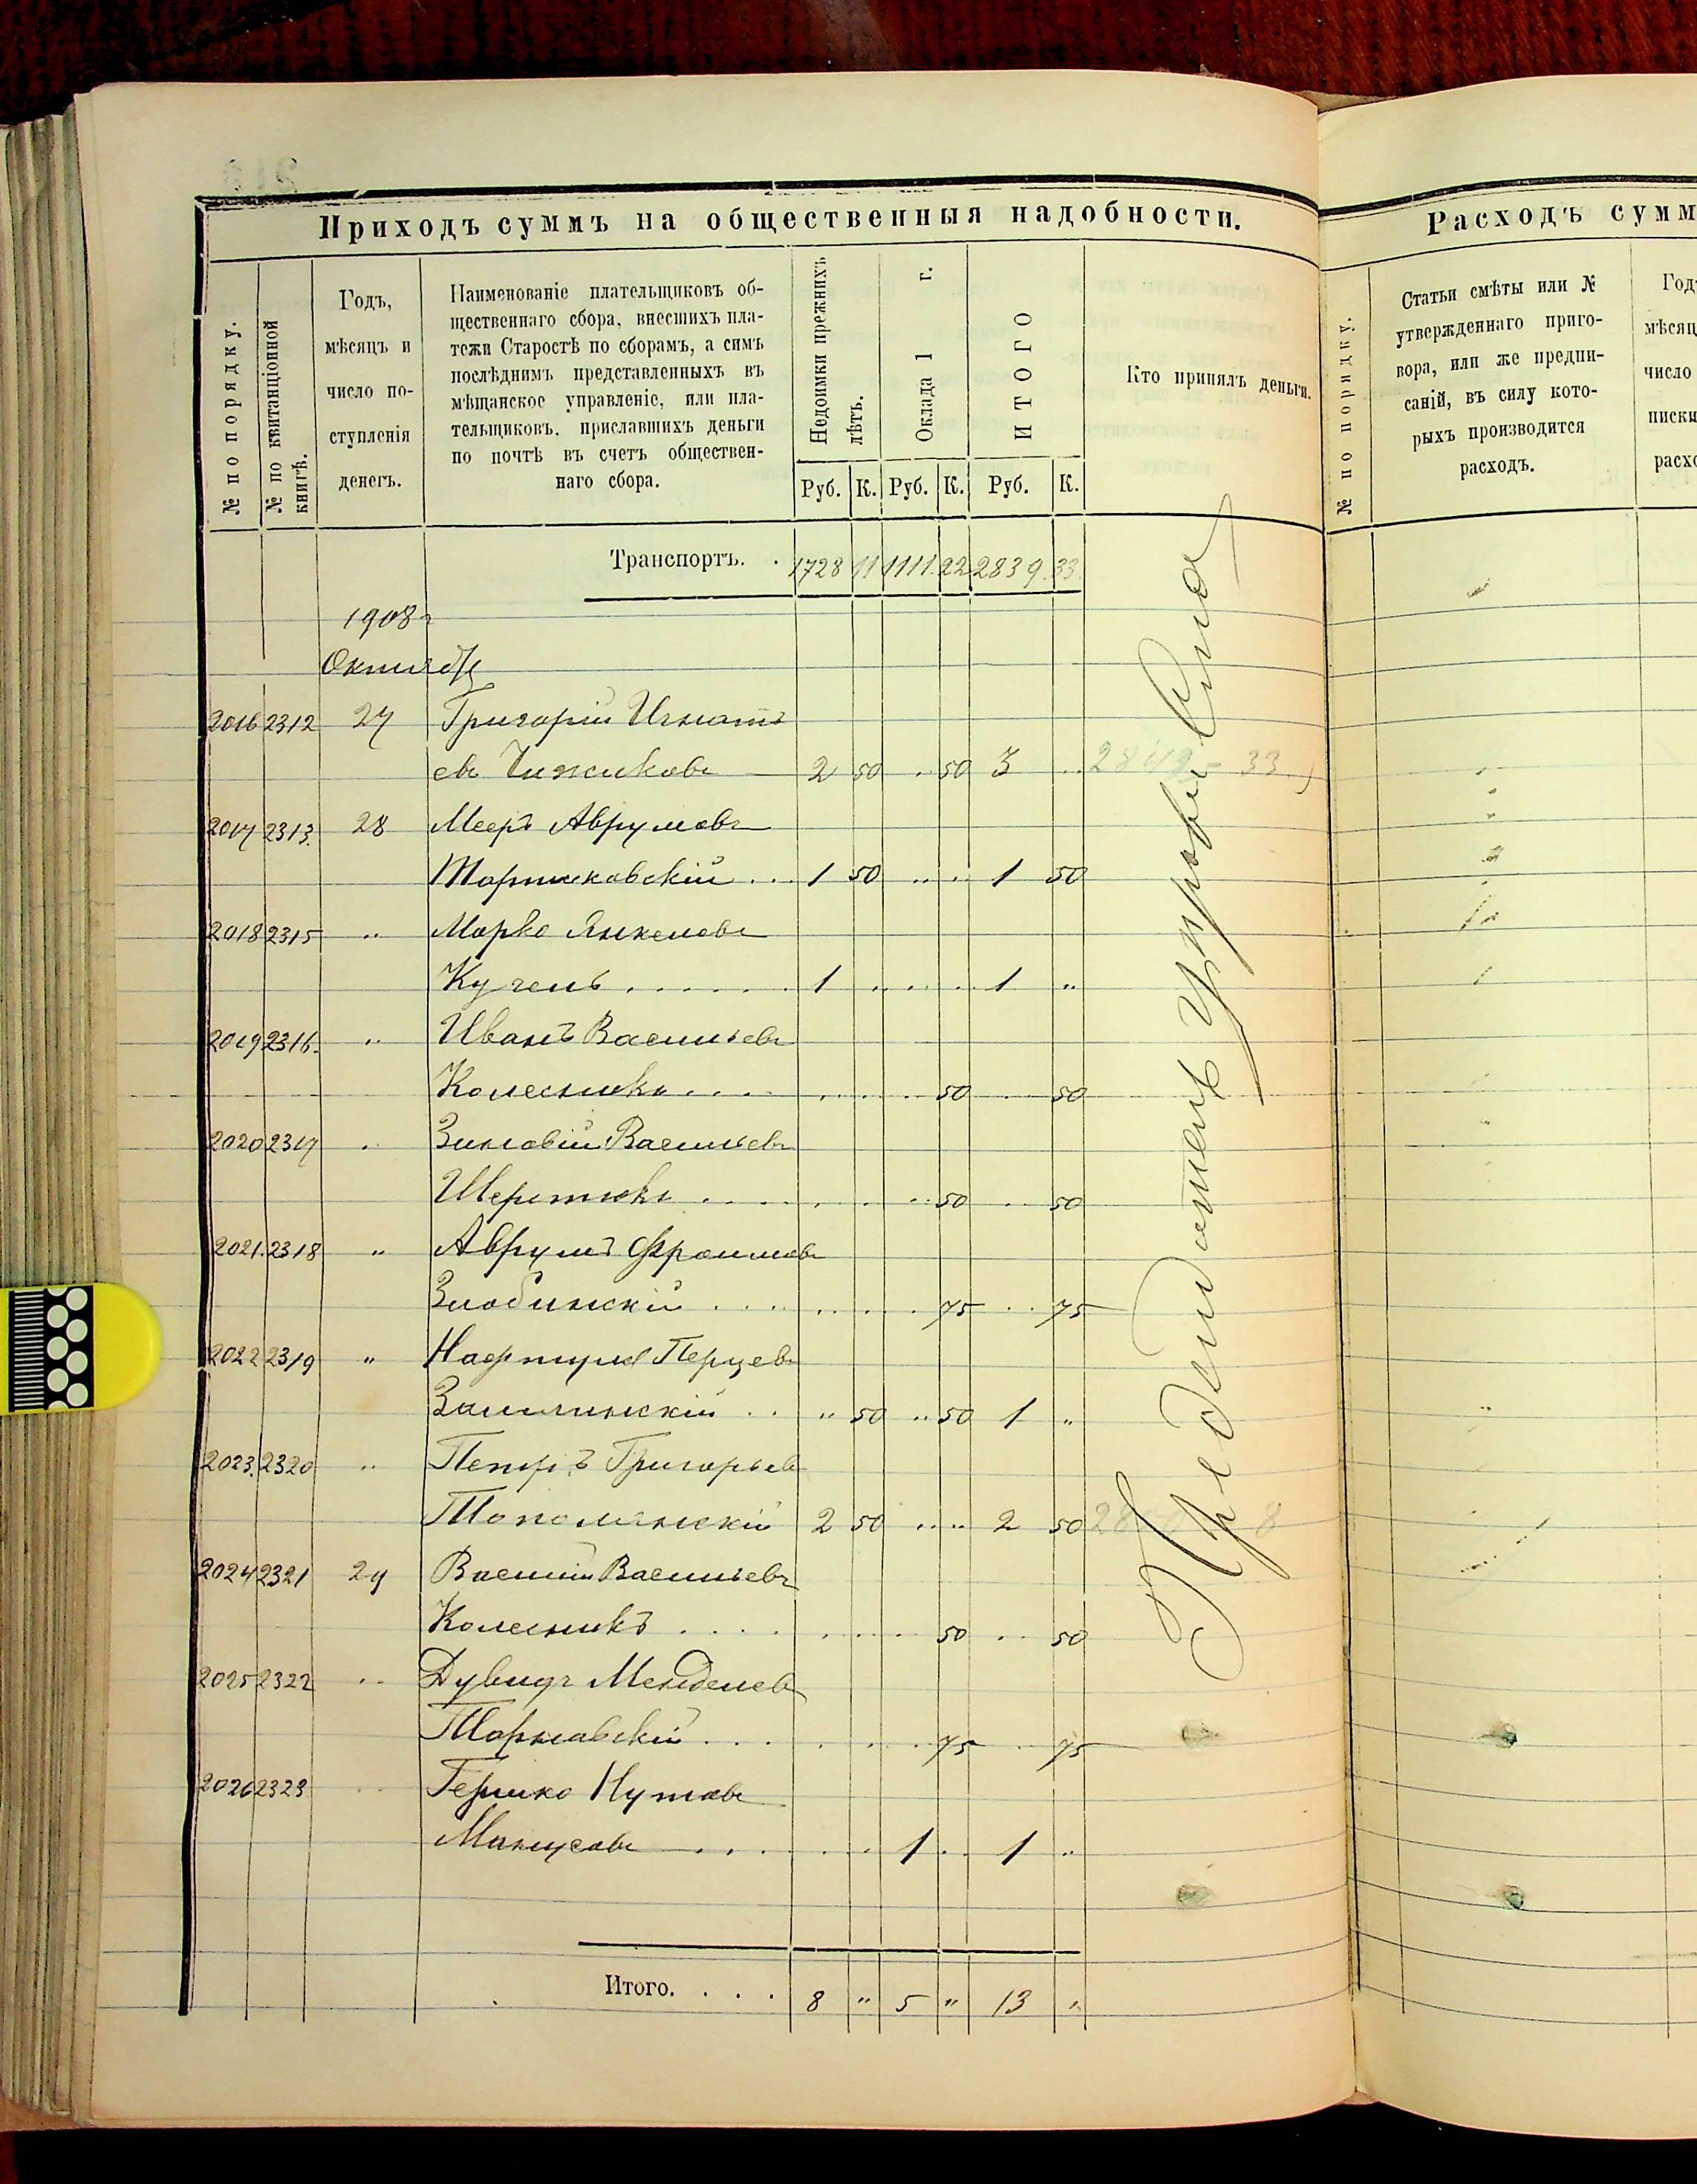 Приходъ суммъ на общественныя надобности.
№ по порядку.
№ по квитанціонной
книгѣ.
Годъ,
мѣсяцъ и
число по-
ступленія
денегъ.
Наименованіе плательщиковъ об-
щественнаго сбора, внесшихъ пла-
тежи Старостѣ по сборамъ, а симъ
послѣднимъ представленныхъ въ
мѣщанское управленіе, или пла-
тельщиковъ, приславшихъ деньги
по почтѣ въ счетъ обществен-
наго сбора.
Недоимки прежнихъ
лѣтъ.
Оклада 1 г.
ИТОГО
Кто принялъ деньги.
Руб. К. Руб. К. Руб. К.
Транспортъ. . 1728 11 1111. 22 2839. 33.
1908 г
Октября
2016 2312 27 Григорій Игнать
евъ Чижиковъ 2 50 .. 50 3 ..
2842 - 33
2017 2313. 28 Мееръ Аврумовъ
... 1 50 .. .. 1 50
2018 2315 " Марко Янкелевъ
Кугель . . . . . . 1 .. .. .. 1 "
2019 2316. " Иванъ Васильевъ
Колесникъ . . . . 50 .. 50
2020 2317 " Зиновій Васильевъ
Шереметъ . . . . 50 .. 50
2021. 2318 " Аврумъ Фроимовъ
Злобинскій . . . . 75 .. 75
2022 2319 " Нафтула Перцевъ
.. " 50 " 50 1 "
2023. 2320 " Петръ Григорьевъ
Тополянскій 2 50 .. .. 2 50
2024 2321 29 Василій Васильевъ
Колесникъ . . . . 50 .. 50
2025 2322 " Дувидъ Менделевъ
Тарнавскій . . . . 75 .. 75
2026 2323 " Гершко Нутовъ
. . . . 1 .. 1 "
Итого. . . . 8 " 5 " 13 "
Расходъ сумм
№ по порядку.
Статьи смѣты или №
утвержденнаго приго-
вора, или же предпи-
саній, въ силу кото-
рыхъ производится
расходъ.
Год
мѣсяц
число
писки
расхо